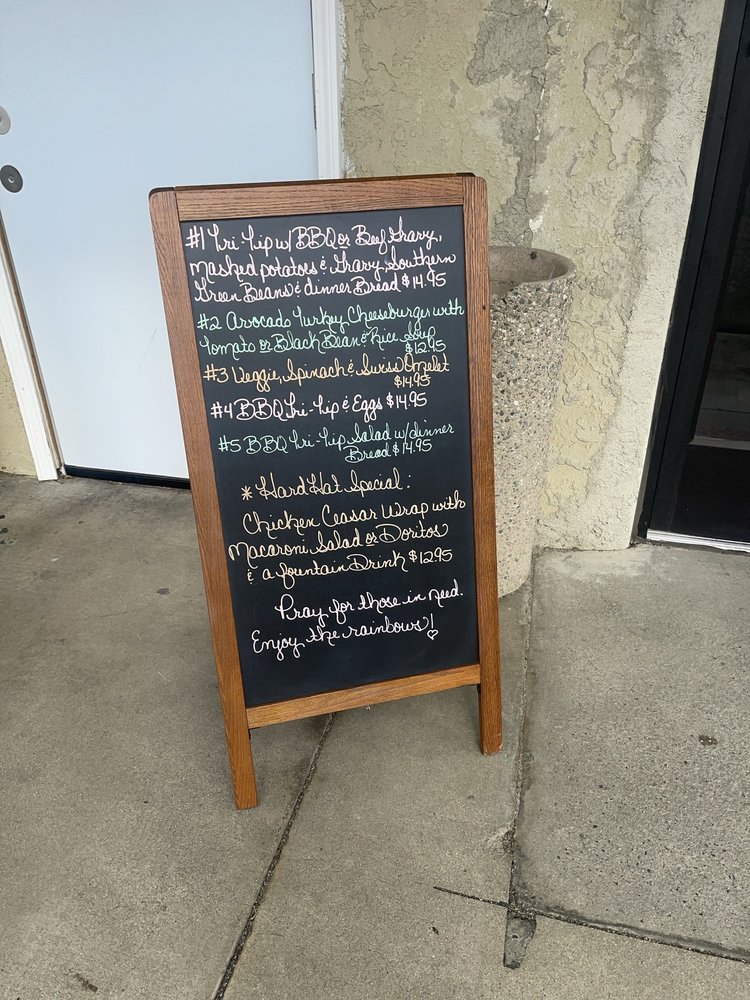 #1 Tri-Tip w/ BBQ or Beef Gravy,
Mashed potatoes & Gravy, Southern
Green Beans & dinner Bread $14.95
#2 Avocado Turkey Cheeseburger with
Tomato or Black Bean & Rice Soup
$12.95
#3 Veggie, Spinach & Swiss Omelet
$14.95
#4 BBQ Tri-Tip & Eggs $14.95
#5 BBQ Tri-Tip Salad w/ dinner
Bread $14.95
* Hard Hat Special:
Chicken Ceasar Wrap with
Macaroni Salad or Doritos
& a fountain Drink $12.95
Pray for those in need.
Enjoy the rainbows! ♡